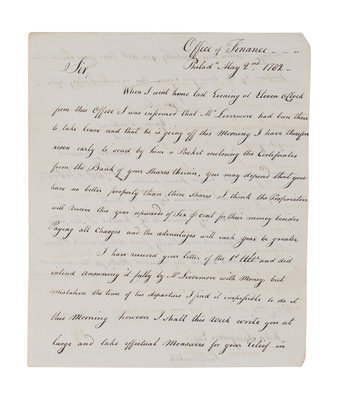 Office of Finance
Philada. May 2nd 1782
Sir
When I went home last Evening at Eleven oClock
from this Office I was informed that Mr Livermore had been there
to take leave and that he is going off this Morning I have therefore
risen early to send by him a Packet enclosing the Certificates
from the Bank of your Shares therein, you may depend that you
have no better property than those Shares I think the Proprietors
will receive this year upwards of Six P Cent for their money besides
Paying all Charges and the advantages will each year be greater
I have received your letter of the 1st Ulto and did
intend answering it fully by Mr Livermore with Money, but
mistaken the time of his departure I find it impossible to do it
this Morning however I shall this Week write you at
large and take effectual Measures for your relief in